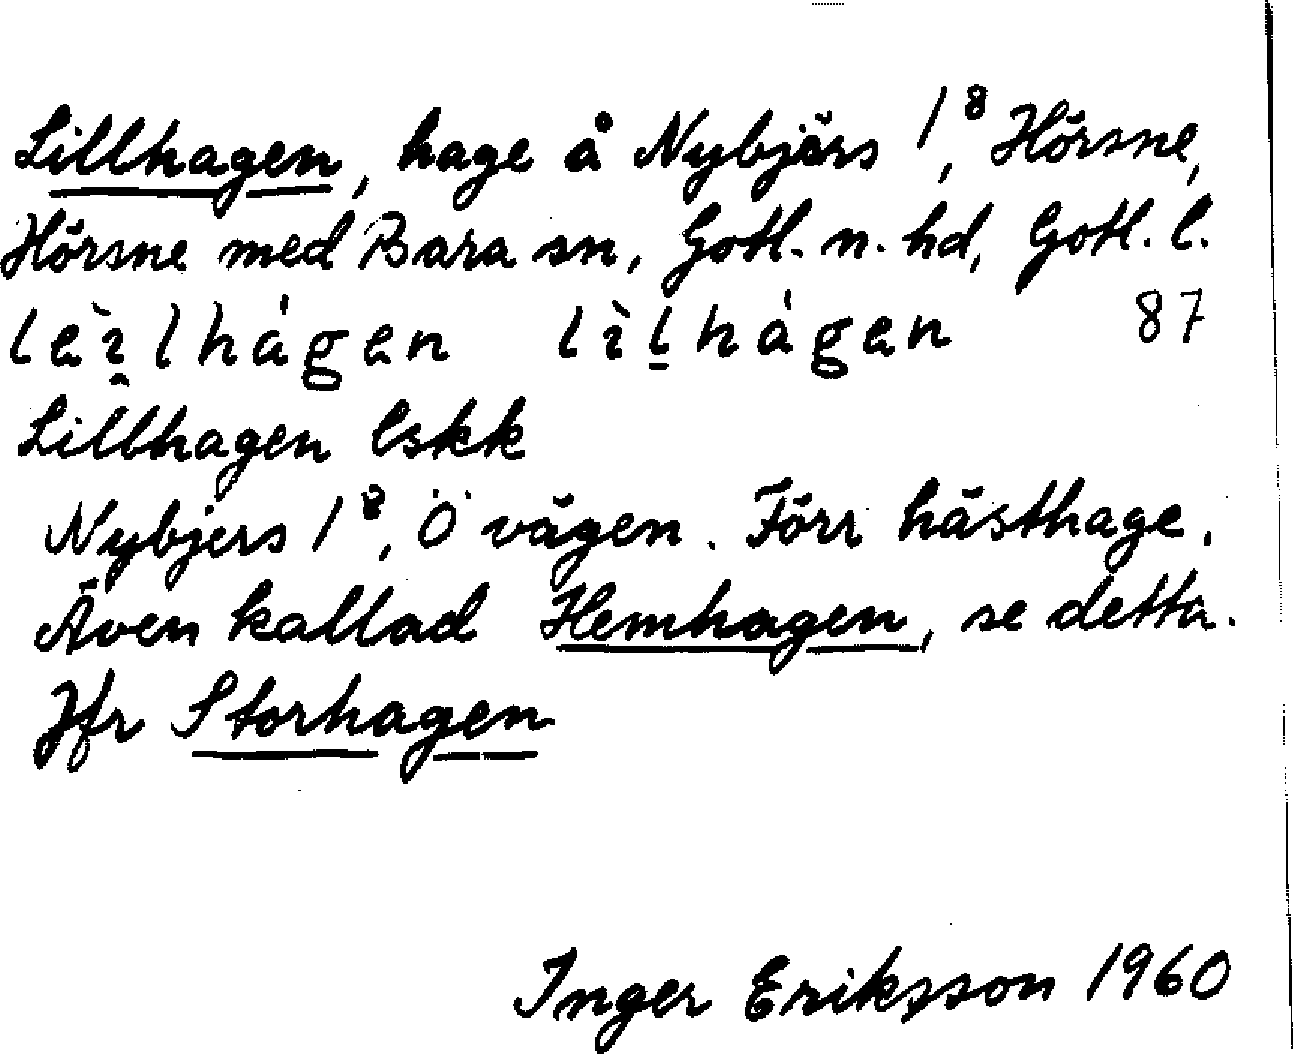 Lillhagen, hage å Nybjärs 1⁸, Hörsne,
Hörsne med Bara sn, Gotl. n. hd, Gotl. l.
lèɪ̯lhágen lìl̠hágen 87
Lillhagen lskk
Nybjers 1⁸, Ö vägen. Förr hästhage.
Även kallad Hemhagen, se detta.
Jfr Storhagen
Inger Eriksson 1960